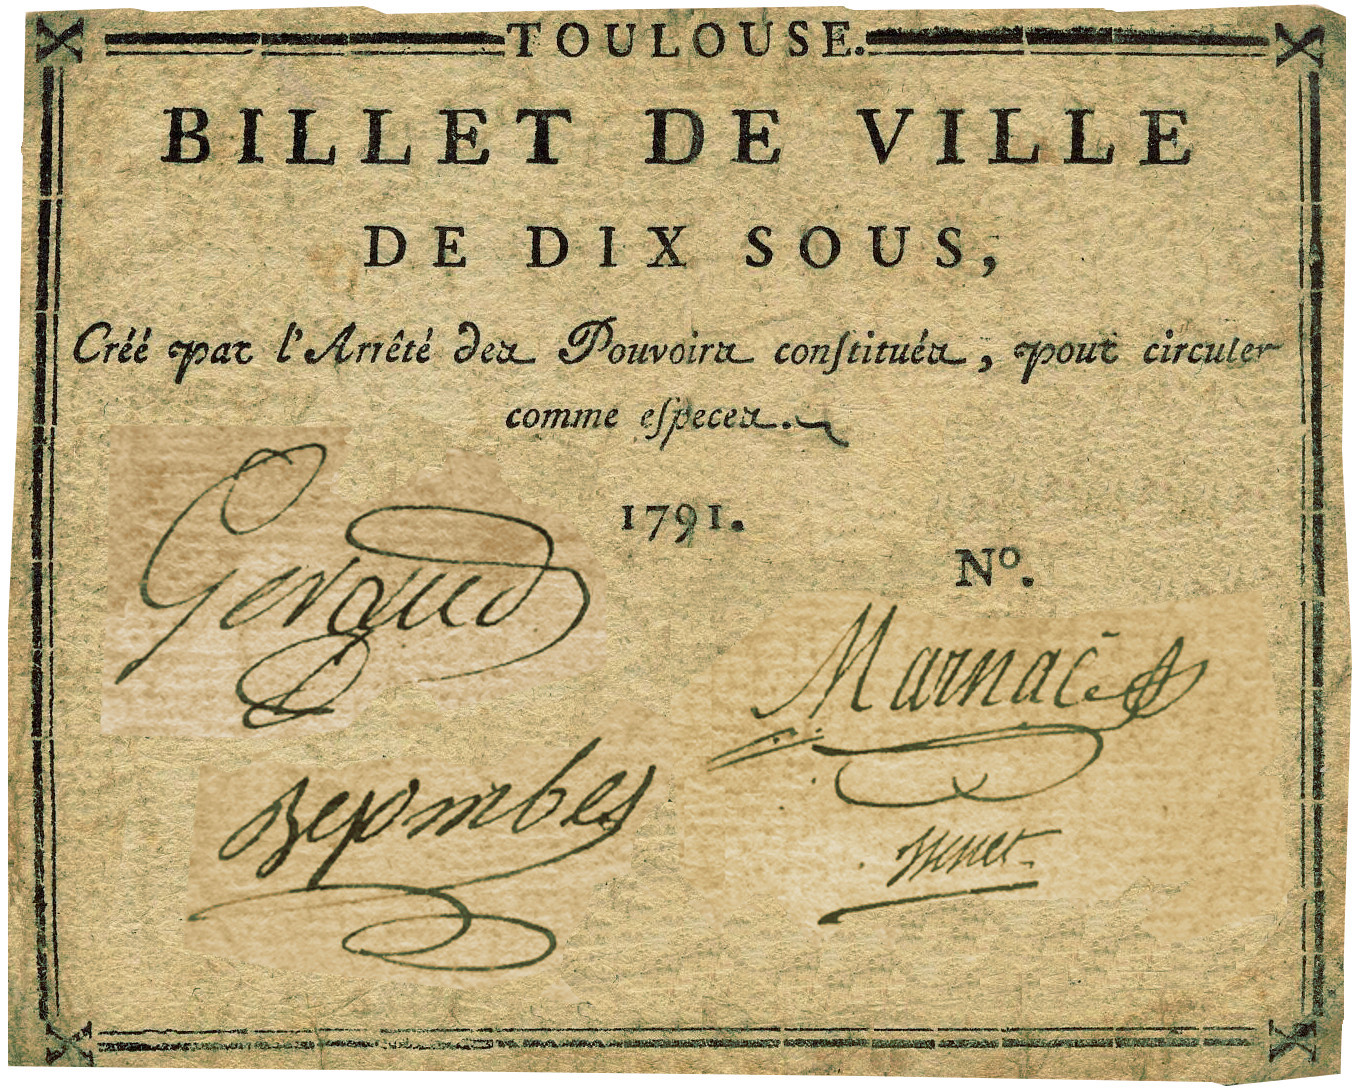 TOULOUSE.
BILLET DE VILLE
DE DIX SOUS,
Créé par l'Arrêté des Pouvoirs conſtitués, pour circuler
comme eſpeces.
1791.
Nº.
Geraud
Marnac